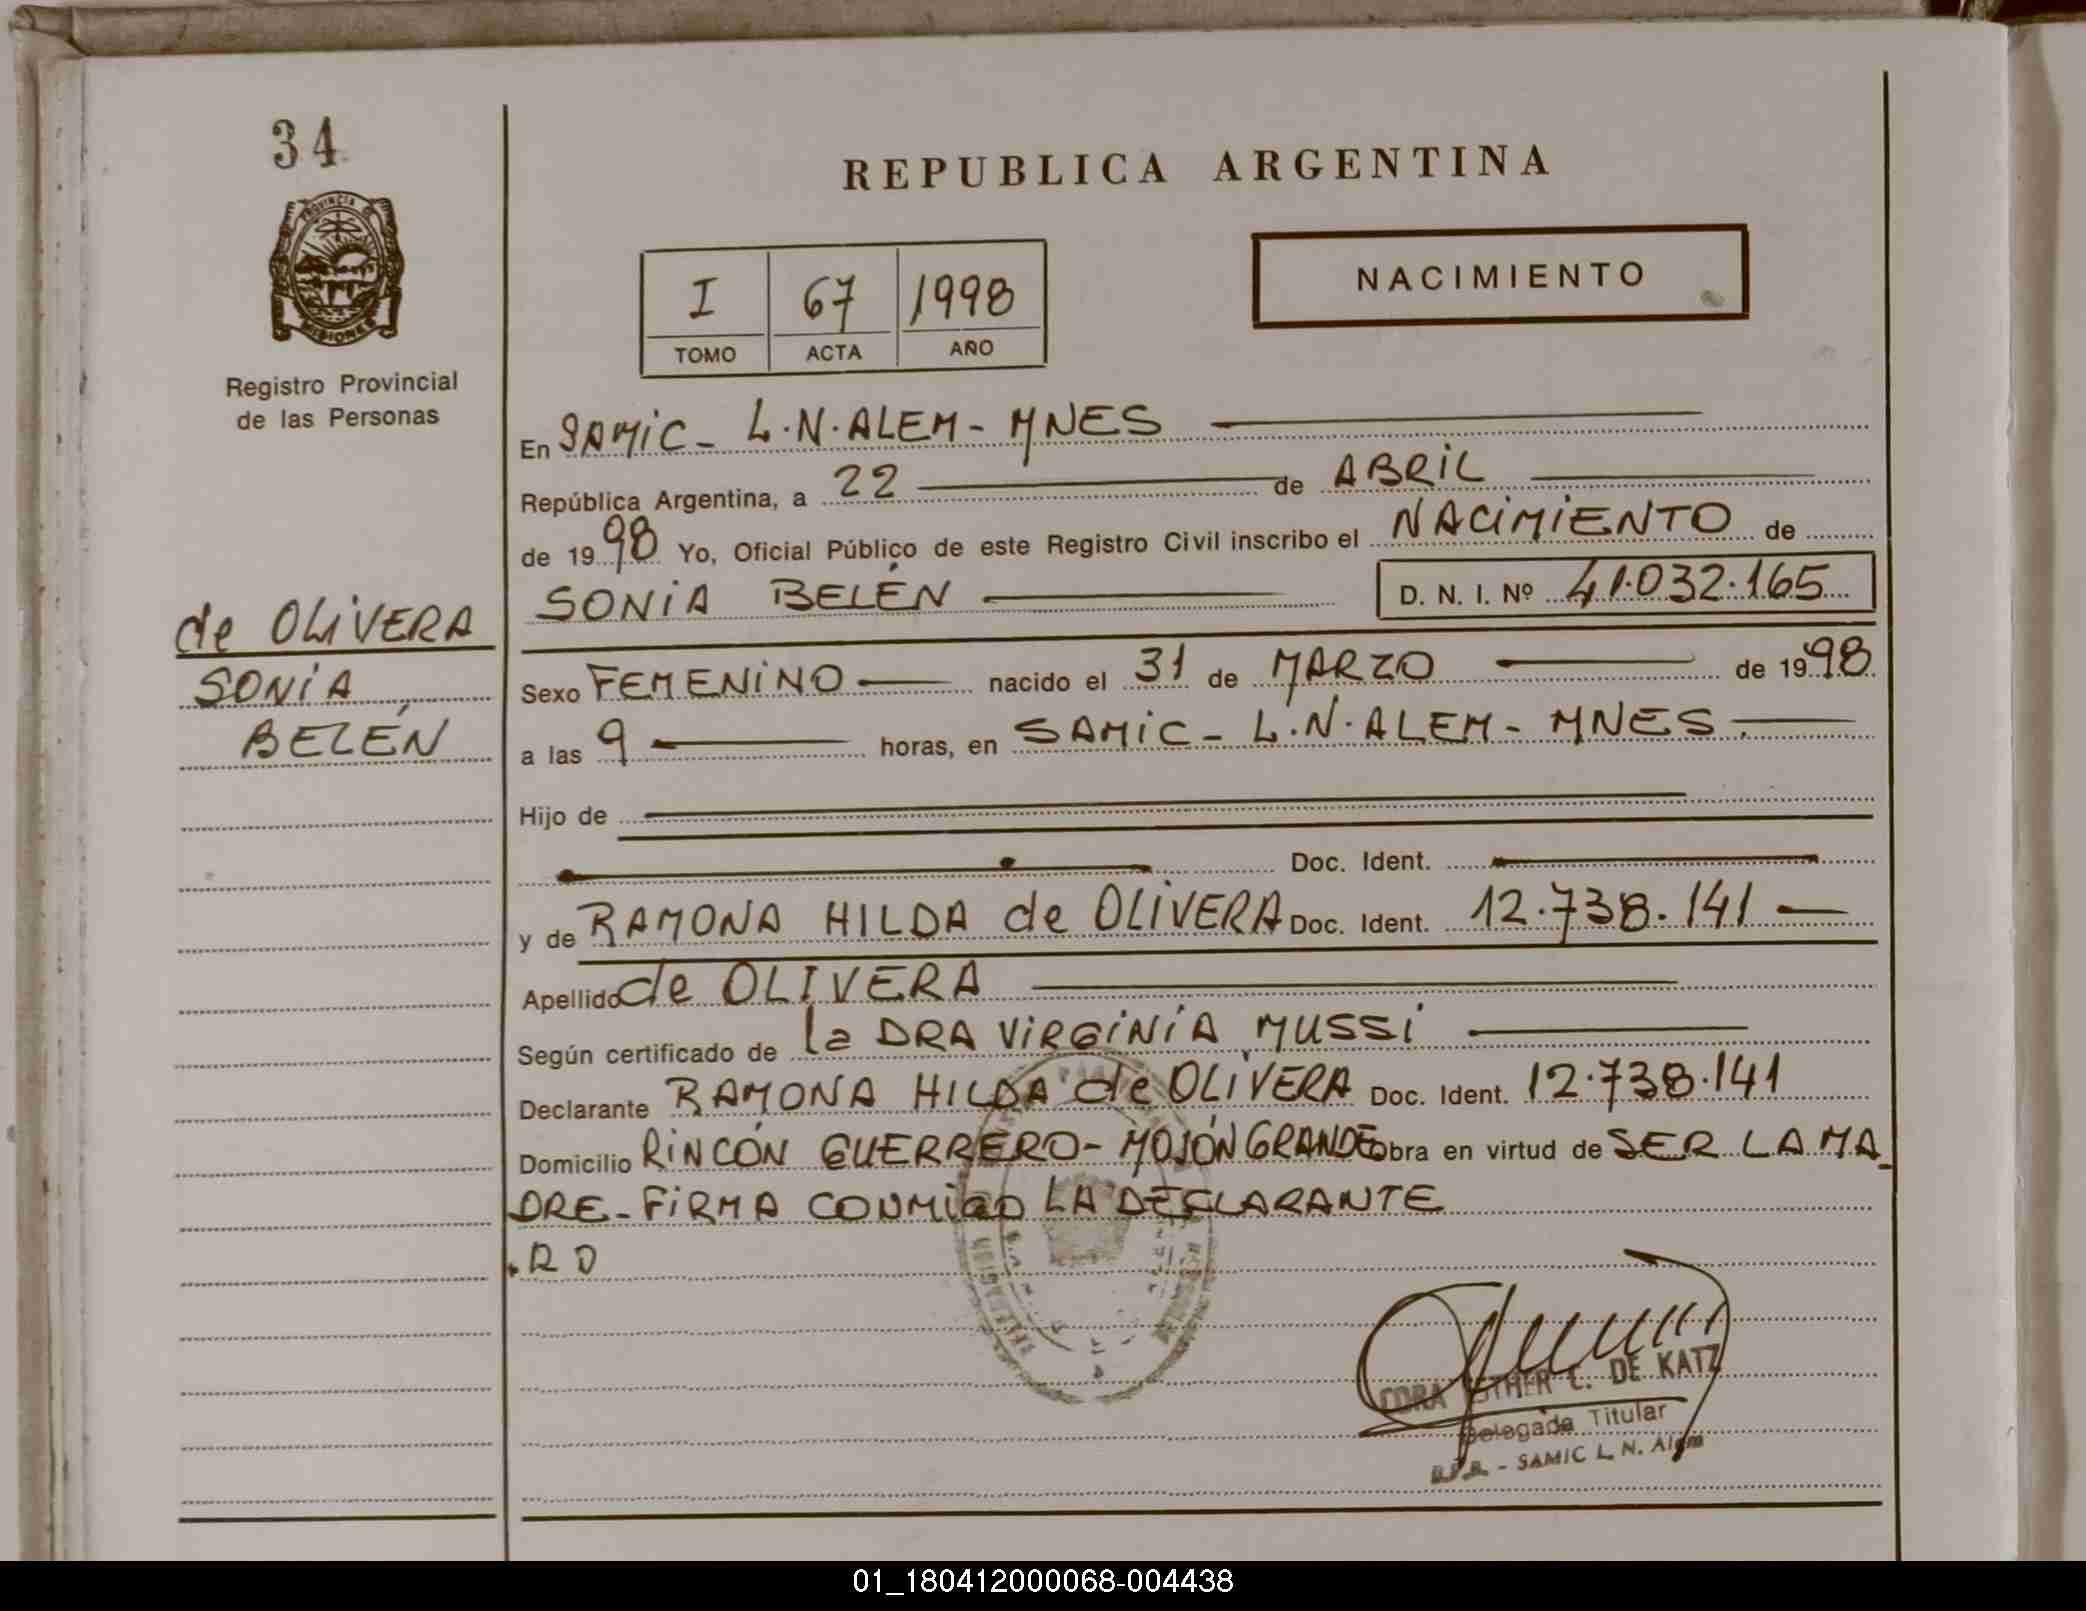 34
REPUBLICA ARGENTINA
PROVINCIA DE
MISIONES
I 67 1998
TOMO ACTA AÑO
NACIMIENTO
Registro Provincial
de las Personas
En SAMIC - L.N.ALEM - MNES
República Argentina, a 22 de ABRIL
de 1998 Yo, Oficial Público de este Registro Civil inscribo el NACIMIENTO de
SONIA BELÉN D. N. I. Nº 41.032.165
de OLIVERA
SONIA
BELÉN
Sexo FEMENINO nacido el 31 de MARZO de 1998
a las 9 horas, en SAMIC - L.N.ALEM - MNES.
Hijo de
Doc. Ident.
y de RAMONA HILDA de OLIVERA Doc. Ident. 12.738.141
Apellido de OLIVERA
Según certificado de la DRA VIRGINIA MUSSI
Declarante RAMONA HILDA de OLIVERA Doc. Ident. 12.738.141
Domicilio RINCÓN GUERRERO - MOJÓN GRANDE obra en virtud de SER LA MA-
DRE - FIRMA CONMIGO LA DECLARANTE
.RD
CORA ESTHER C. DE KATZ
Delegada Titular
- SAMIC L. N. Alem
01_180412000068-004438